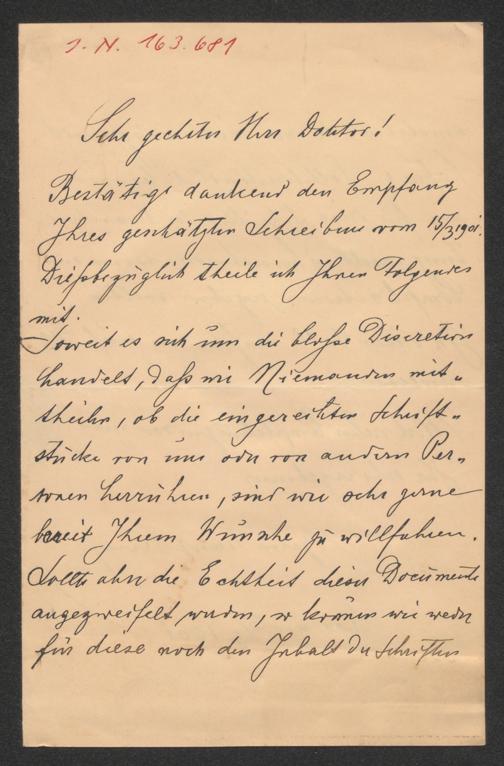 J. N. 163.681
Sehr geehrter Herr Doktor!
Bestätige dankend den Empfang
Ihres geschätzten Schreibens vom 15/3 1901.
Dießbezüglich theile ich Ihnen Folgendes
mit.
Soweit es sich um die bloße Discretion
handelt, daß wir Niemanden mit„
theilen, ob die eingereichten Schrift„
stücke von uns oder von andern Per„
sonen herrühren, sind wir sehr gerne
bereit Ihrem Wunsche zu willfahren.
Sollte aber die Echtheit dieser Documente
angezweifelt werden, so können wir weder
für diese noch den Inhalt der Schriften